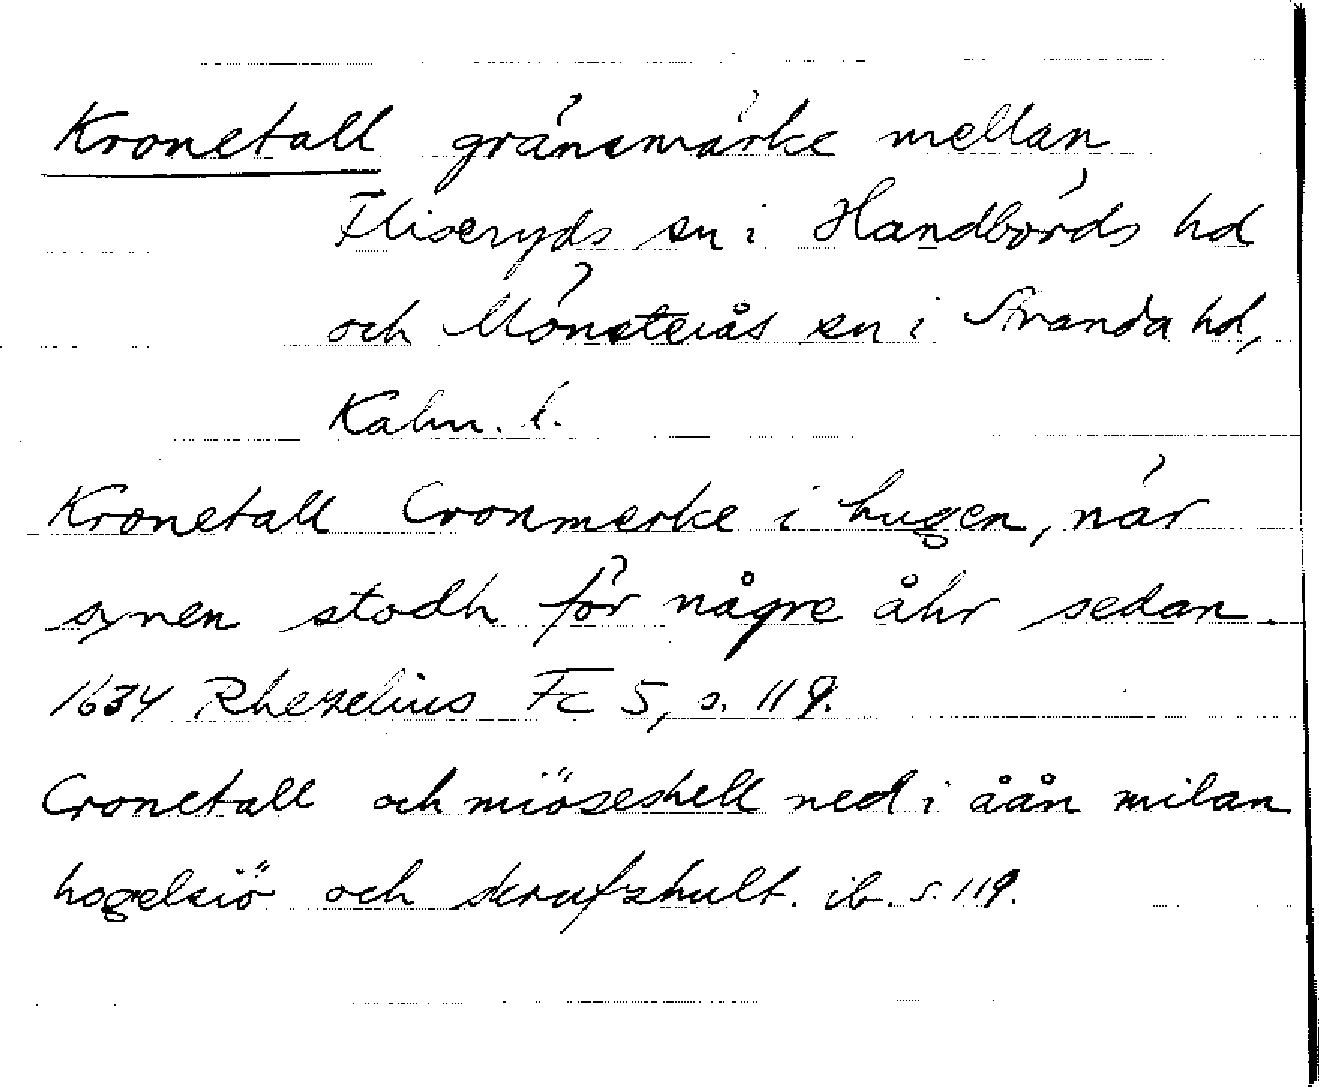 Kronetall gränsmärke mellan
Fliseryds sn i Handbörds hd
och Mönsterås sn i Stranda hd,
Kalm. l.
Kronetall Cronmerke i hugen, när
synen stodh för någre åhr sedan.
1634 Rhezelius Fc 5, s. 119.
Cronetall och miöseshell ned i åån milan
hogelsiö och skrufzhult. ib. s. 119.